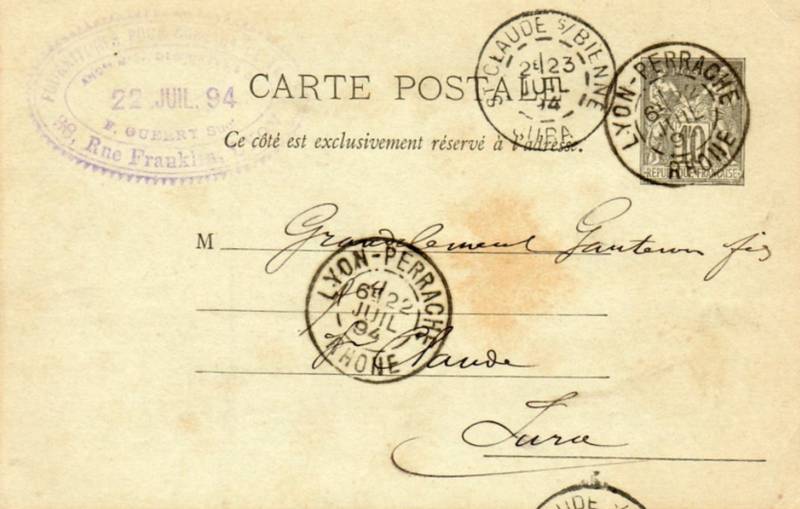 FOURNITURES POUR
22 JUIL. 94
E. GUERRY Sr
Rue Franklin,
CARTE POSTALE
Ce côté est exclusivement réservé à l'adresse.
St CLAUDE s/BIENNE
2E 23
JUIL
94
JURA
LYON-PERRACHE
6E
JUIL
94
RHONE
10
REPUBLIQUE FRANÇAISE
M Grandclement Gauteron fils
LYON-PERRACHE
6E 22
JUIL
94
RHONE
St Claude
Jura